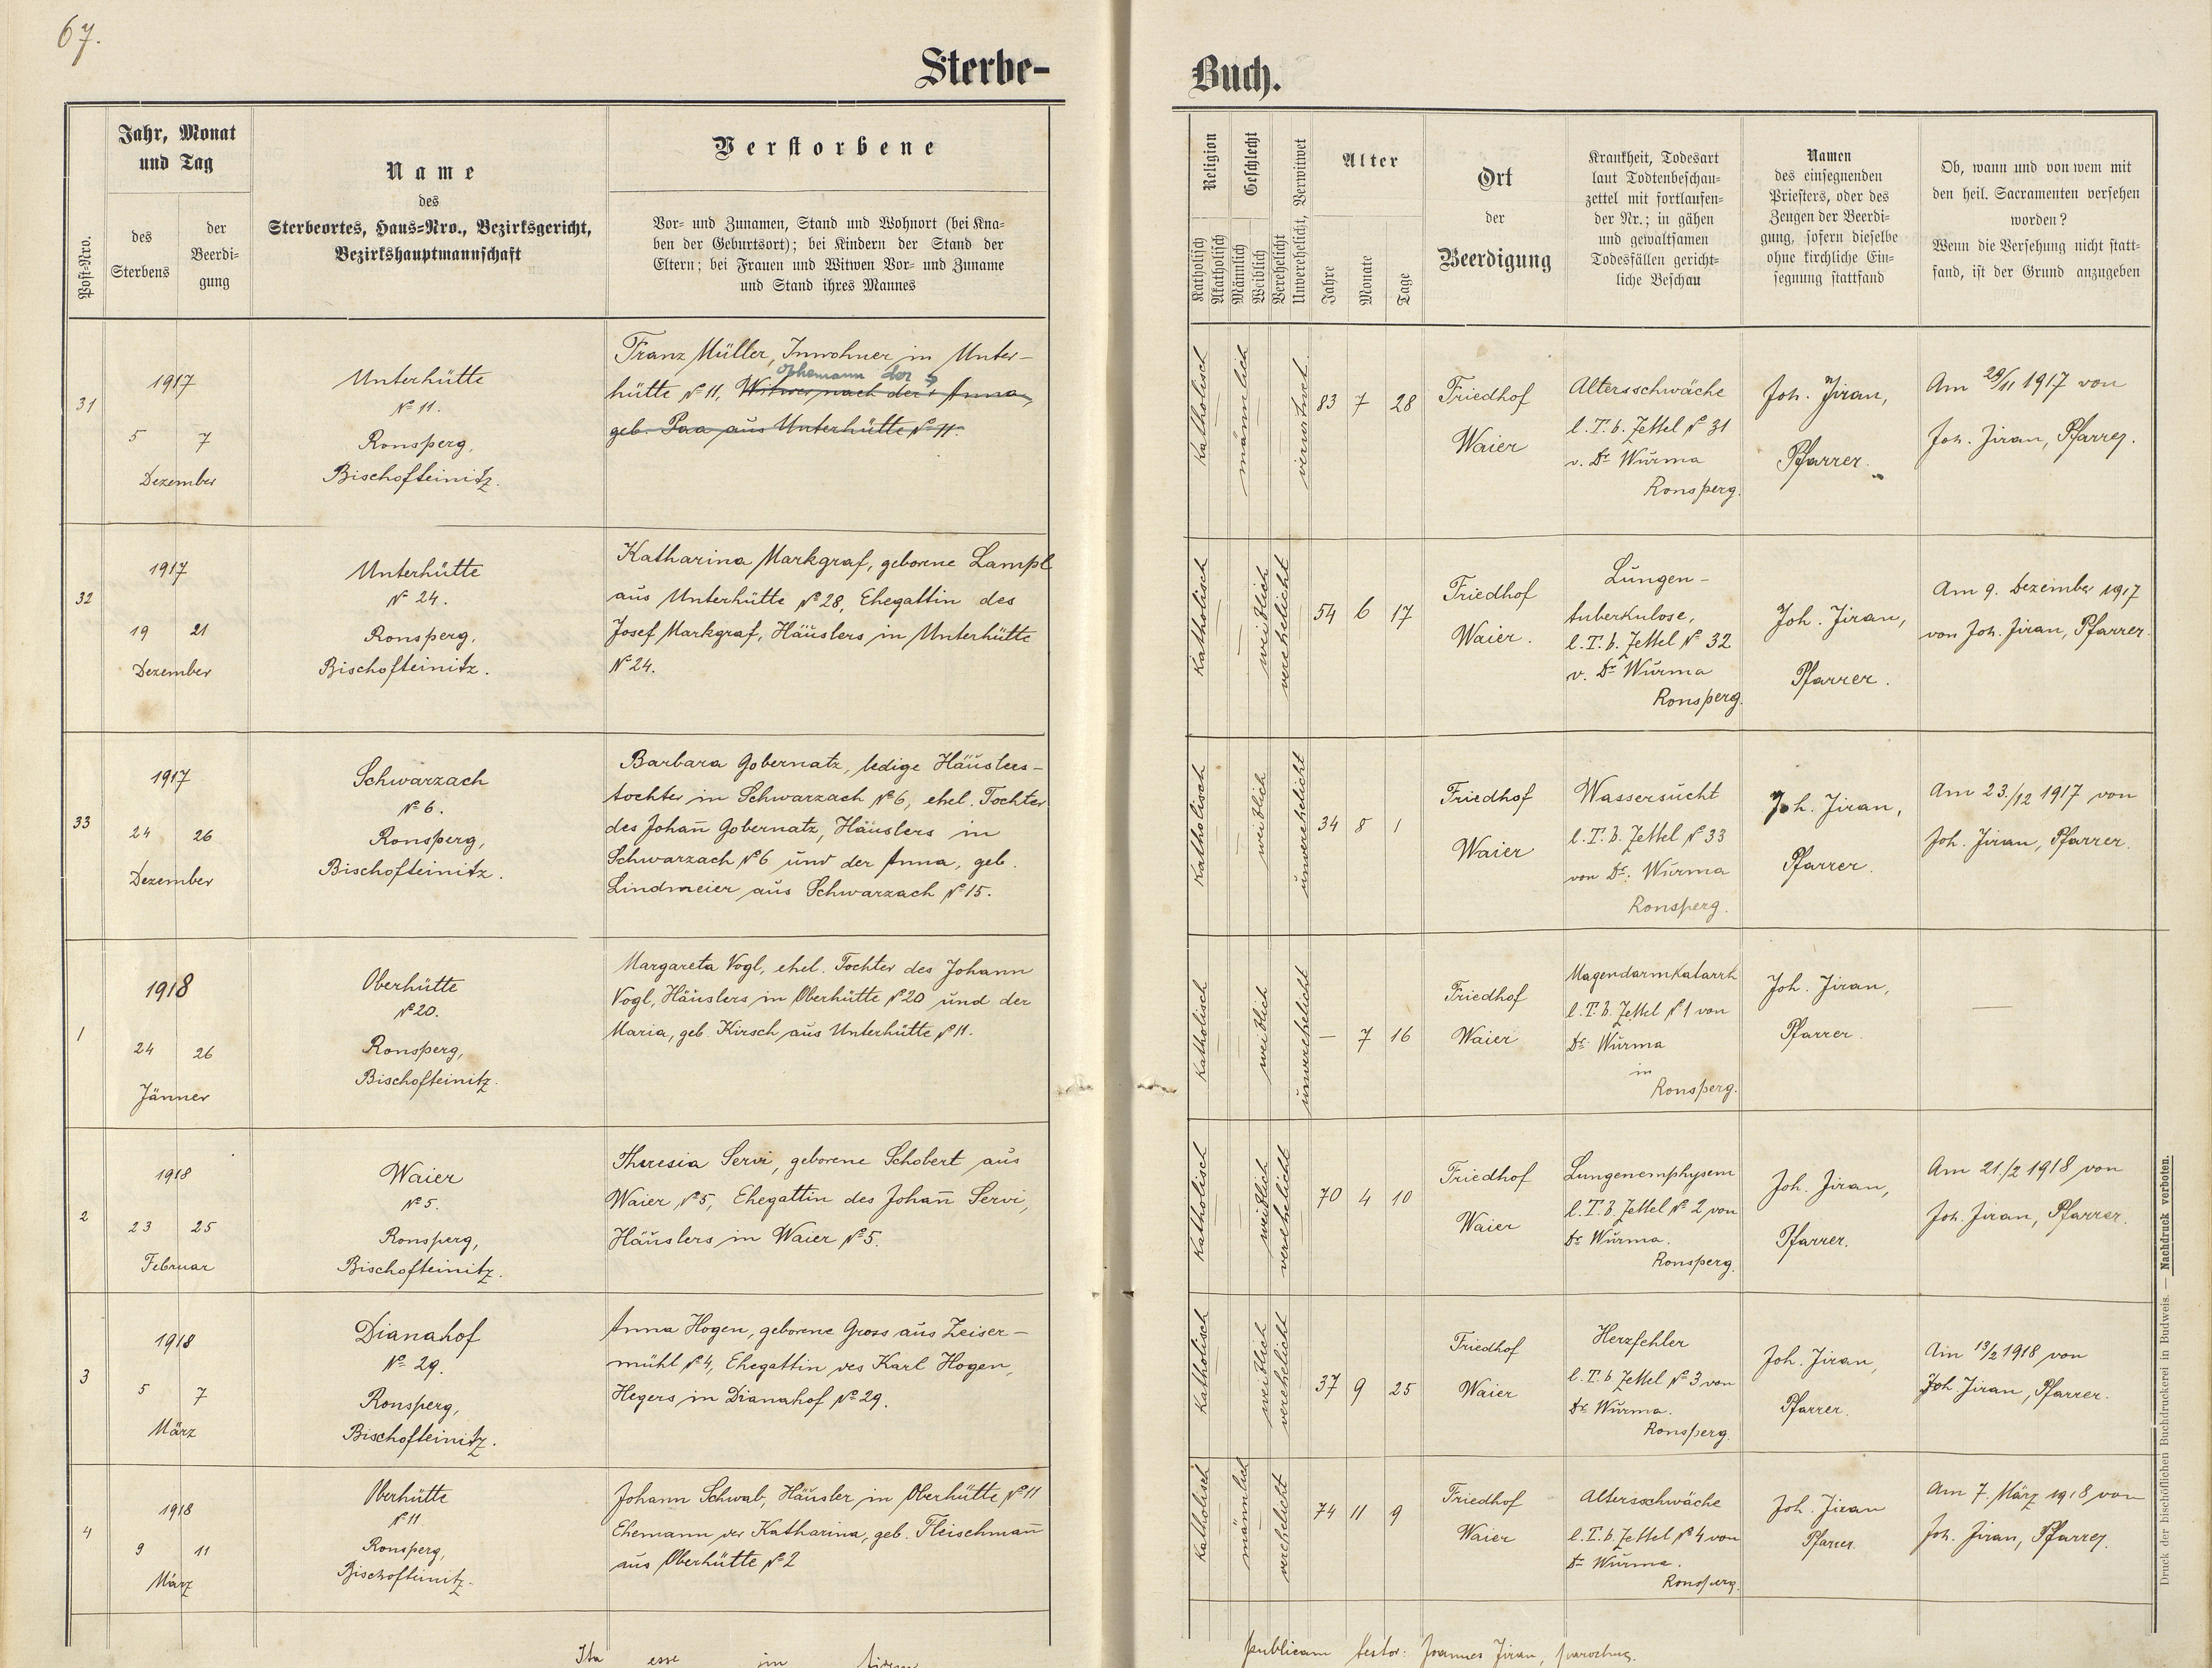 67.
Sterbe-
Buch.
Post-Nro.
Jahr, Monat
und Tag
des
Sterbens
der
Beerdi-
gung
Name
des
Sterbeortes, Haus-Nro., Bezirksgericht,
Bezirkshauptmannschaft
Verstorbene
Vor- und Zunamen, Stand und Wohnort (bei Kna-
ben der Geburtsort); bei Kindern der Stand der
Eltern; bei Frauen und Witwen Vor- und Zuname
und Stand ihres Mannes
Religion
Katholisch
Akatholisch
Geschlecht
Männlich
Weiblich
Verehelicht
Unverehelicht, Verwitwet
Alter
Jahre
Monate
Tage
Ort
der
Beerdigung
Krankheit, Todesart
laut Todtenbeschau-
zettel mit fortlaufen-
der Nr.; in gähen
und gewaltsamen
Todesfällen gericht-
liche Beschau
Namen
des einsegnenden
Priesters, oder des
Zeugen der Beerdi-
gung, sofern dieselbe
ohne kirchliche Ein-
segnung stattfand
Ob, wann und von wem mit
den heil. Sacramenten versehen
worden?
Wenn die Versehung nicht statt-
fand, ist der Grund anzugeben
31
1917
5 7
Dezember
Unterhütte
№ 11.
Ronsperg,
Bischofteinitz.
Franz Müller, Inwohner in Unter-
Ehemann der
hütte № 11, Witwer nach der Anna,
geb. Paa aus Unterhütte № 11.
Katholisch
männlich
verwitwet.
83 7 28
Friedhof
Waier
Altersschwäche
l. T. b. Zettel № 31
v. Dr. Wurma
Ronsperg.
Joh. Jiran,
Pfarrer.
Am 29/11 1917 von
Joh. Jiran, Pfarrer.
32
1917
19 21
Dezember
Unterhütte
№ 24.
Ronsperg,
Bischofteinitz.
Katharina Markgraf, geborene Lampl
aus Unterhütte № 28, Ehegattin des
Josef Markgraf, Häuslers in Unterhütte
№ 24.
Katholisch
weiblich
verehelicht
54 6 17
Friedhof
Waier.
Lungen-
tuberkulose,
l. T. b. Zettel № 32
v. Dr. Wurma
Ronsperg.
Joh. Jiran,
Pfarrer.
Am 9. Dezember 1917
von Joh. Jiran, Pfarrer.
33
1917
24 26
Dezember
Schwarzach
№ 6.
Ronsperg,
Bischofteinitz.
Barbara Gobernatz, ledige Häuslers-
tochter in Schwarzach № 6, ehel. Tochter
des Johan̄ Gobernatz, Häuslers in
Schwarzach № 6 und der Anna, geb.
Lindmeier aus Schwarzach № 15.
Katholisch
weiblich
unverehelicht
34 8 1
Friedhof
Waier
Wassersucht
l. T. b. Zettel № 33
von Dr. Wurma
Ronsperg.
Joh. Jiran,
Pfarrer.
Am 23./12 1917 von
Joh. Jiran, Pfarrer.
1
1918
24 26
Jänner
Oberhütte
№ 20.
Ronsperg,
Bischofteinitz.
Margareta Vogl, ehel. Tochter des Johann
Vogl, Häuslers in Oberhütte № 20 und der
Maria, geb. Kirsch aus Unterhütte № 11.
Katholisch
weiblich
unverehelicht
— 7 16
Friedhof
Waier
Magendarmkatarrh
l. T. b. Zettel № 1 von
Dr. Wurma
in
Ronsperg.
Joh. Jiran,
Pfarrer.
—
2
1918
23 25
Februar
Waier
№ 5.
Ronsperg,
Bischofteinitz.
Theresia Servi, geborene Schobert aus
Waier № 5, Ehegattin des Johan̄ Servi,
Häuslers in Waier № 5.
Katholisch
weiblich
verehelicht
70 4 10
Friedhof
Waier
Lungenemphysem
l. T. b. Zettel № 2 von
Dr. Wurma.
Ronsperg.
Joh. Jiran,
Pfarrer.
Am 21./2 1918 von
Joh. Jiran, Pfarrer.
3
1918
5 7
März
Dianahof
№ 29.
Ronsperg,
Bischofteinitz.
Anna Hogen, geborene Gross aus Zeiser-
mühl № 4, Ehegattin des Karl Hogen,
Hegers in Dianahof № 29.
Katholisch
weiblich
verehelicht
37 9 25
Friedhof
Waier
Herzfehler
l. T. b. Zettel № 3 von
Dr. Wurma.
Ronsperg.
Joh. Jiran,
Pfarrer.
Am 13/2 1918 von
Joh. Jiran, Pfarrer.
4
1918
9 11
März
Oberhütte
№ 11
Ronsperg,
Bischofteinitz.
Johann Schwab, Häusler in Oberhütte № 11
Ehemann der Katharina, geb. Fleischman̄
aus Oberhütte № 2
Katholisch
männlich
verehelicht
74 11 9
Friedhof
Waier
Altersschwäche
l. T. b. Zettel № 4 von
Dr. Wurma.
Ronsperg.
Joh. Jiran
Pfarrer.
Am 7. März 1918 von
Joh. Jiran, Pfarrer.
Ita esse in fidem
publicam testor: Joannes Jiran, parochus.
Druck der bischöflichen Buchdruckerei in Budweis. — Nachdruck verboten.